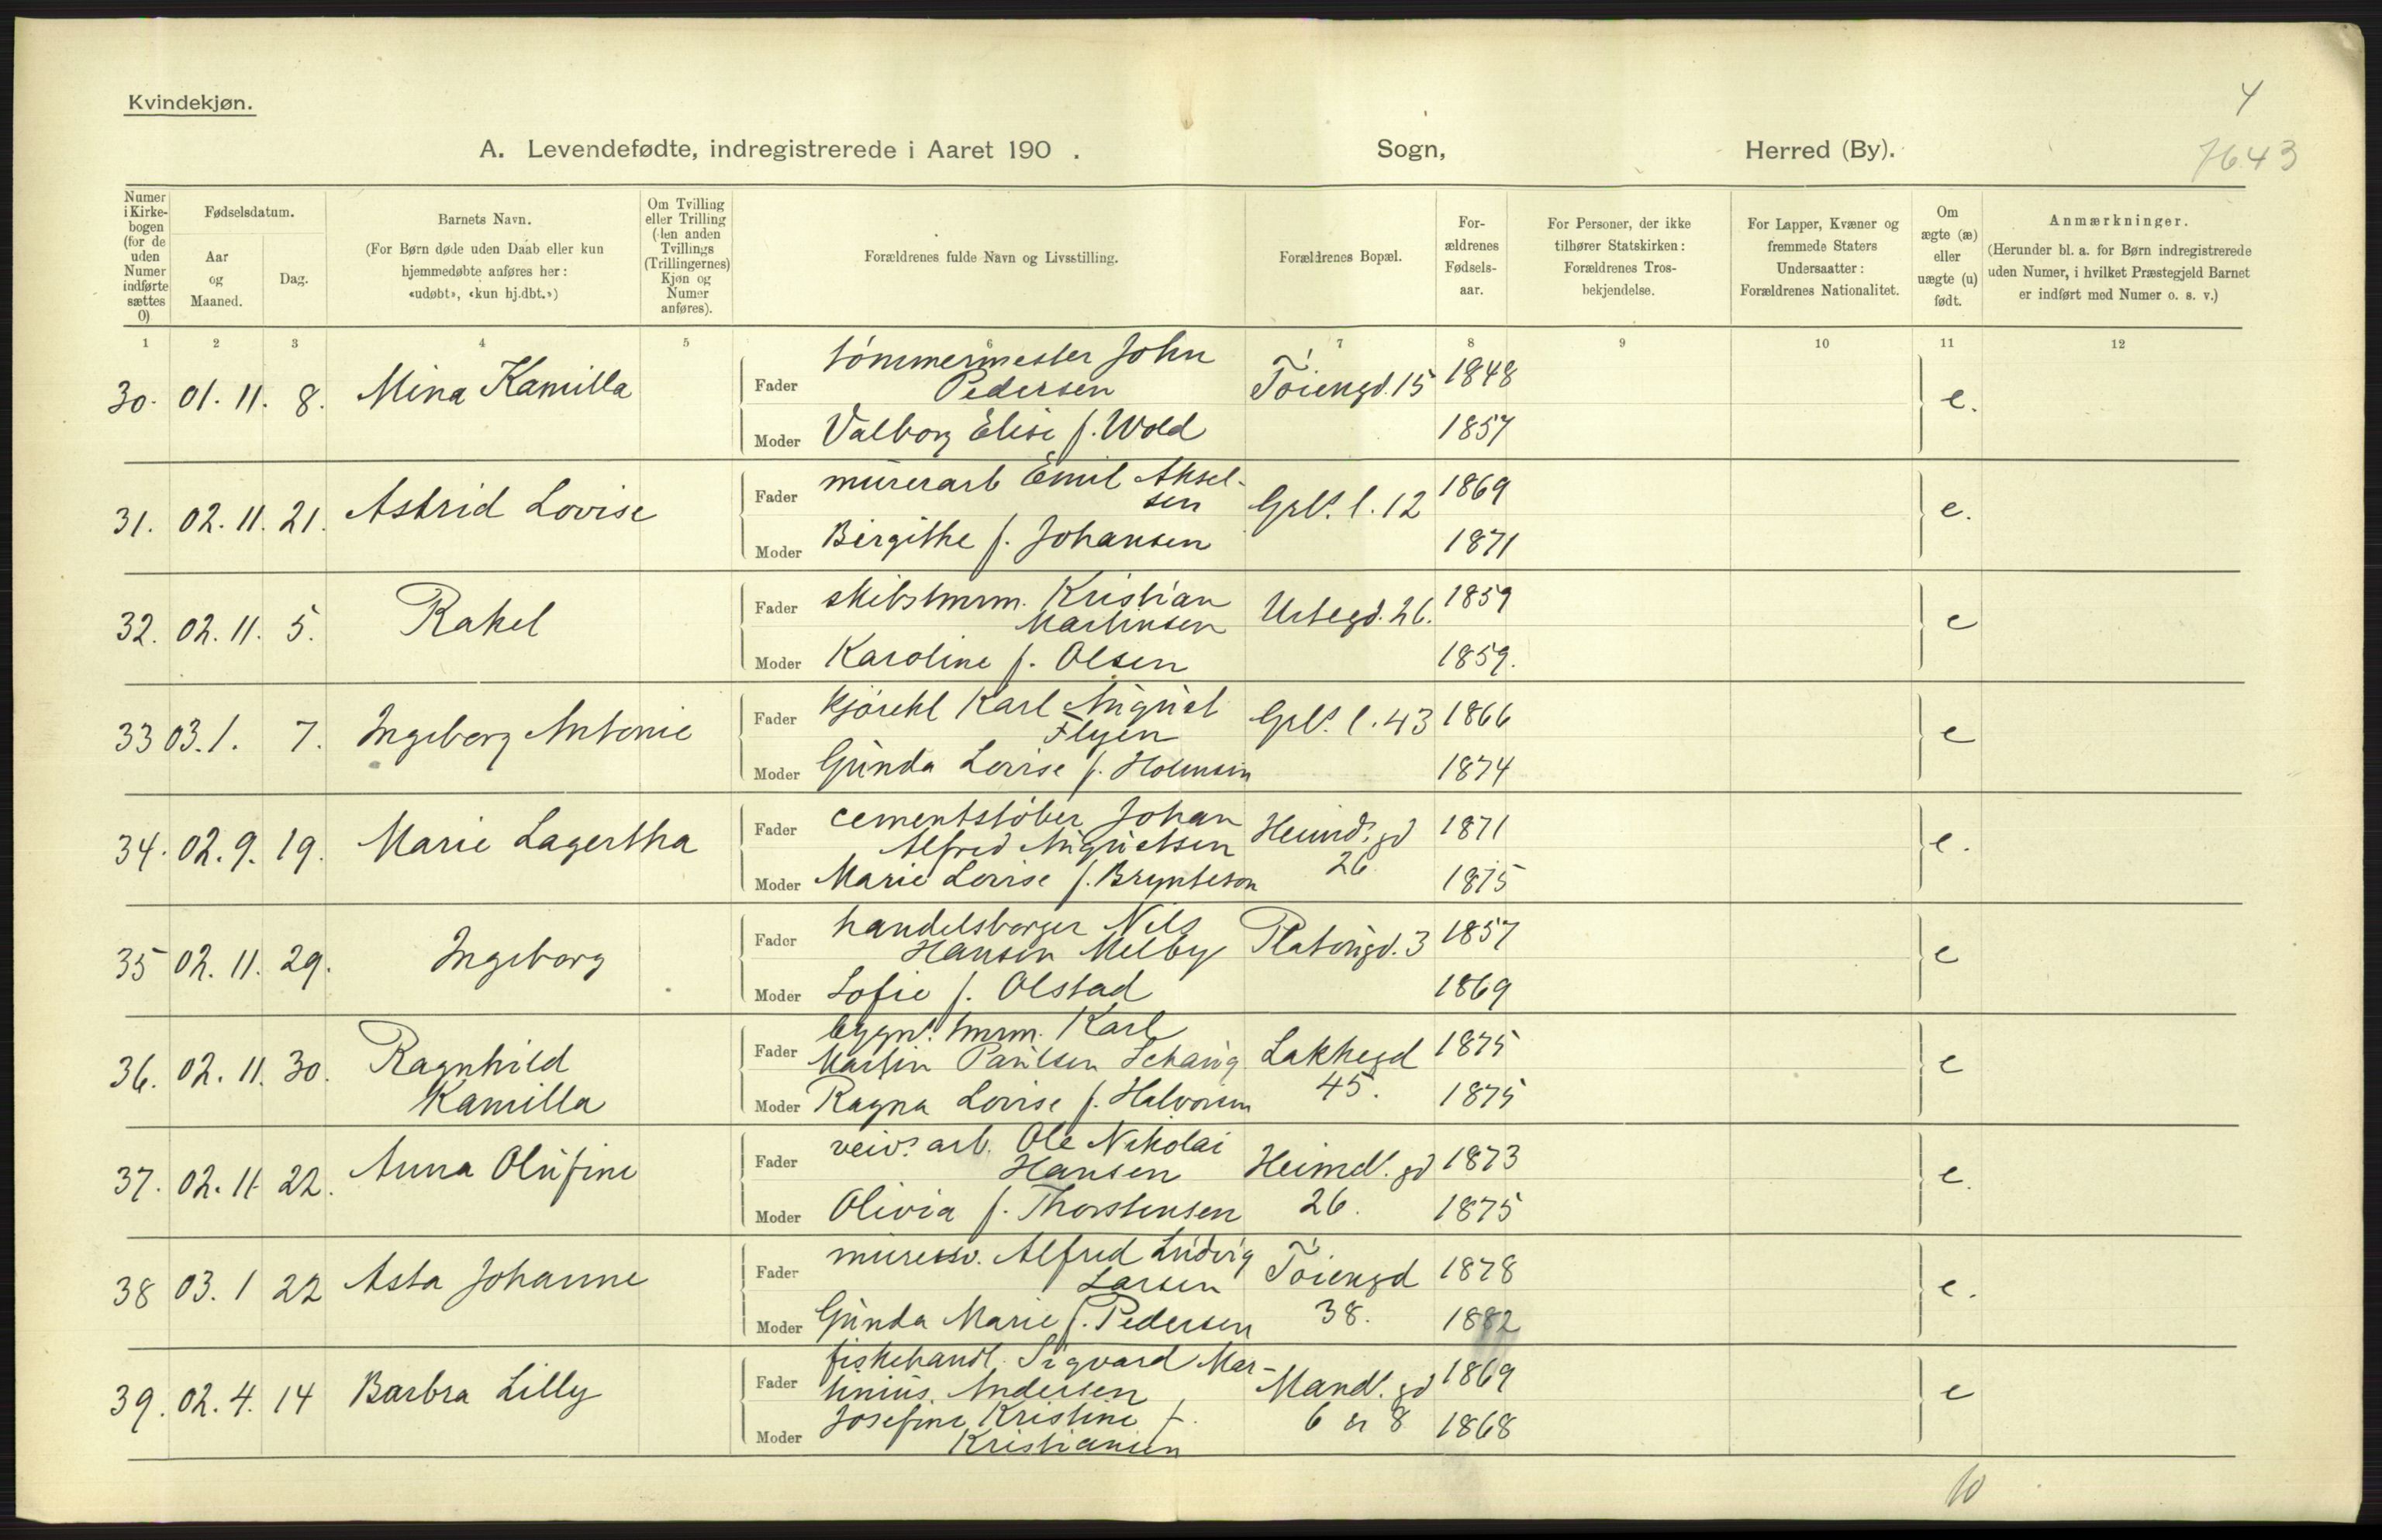 Kvindekjøn.
4
A. Levendefødte, indregistrerede i Aaret 190 . Sogn, Herred (By).
7643
Numer i Kirkebogen (for de uden Numer indførte sættes 0)
Fødselsdatum.
Aar og Maaned.
Dag.
Barnets Navn.
(For Børn døde uden Daab eller kun hjemmedøbte anføres her: «udøbt», «kun hj.dbt.»)
Om Tvilling eller Trilling (den anden Tvillings (Trillingernes) Kjøn og Numer anføres).
Forældrenes fulde Navn og Livsstilling.
Forældrenes Bopæl.
Forældrenes Fødselsaar.
For Personer, der ikke tilhører Statskirken: Forældrenes Trosbekjendelse.
For Lapper, Kvæner og fremmede Staters Undersaatter: Forældrenes Nationalitet.
Om ægte (æ) eller uægte (u) født.
Anmærkninger.
(Herunder bl. a. for Børn indregistrerede uden Numer, i hvilket Præstegjeld Barnet er indført med Numer o. s. v.)
1 2 3 4 5 6 7 8 9 10 11 12
30. 01. 11. 8. Mina Kamilla
Fader tömmermester John Pedersen Töiengd. 15 1848 e.
Moder Valborg Elise f. Wold 1857
31. 02. 11. 21. Astrid Lovise
Fader murerarb Emil Aksel-
sen Grls. l. 12 1869 e.
Moder Birgithe f. Johansen 1871
32. 02. 11. 5. Rakel
Fader skibstmrm. Kristian
Martinsen Urtegd. 26. 1859 e
Moder Karoline f. Olsen 1859.
33 03. 1. 7. Ingeborg Antonie
Fader kjörekl Karl August
Flyen Grls. l. 43 1866 e
Moder Gunda Lovise f. Holmsen 1874
34. 02. 9. 19. Marie Lagertha
Fader cementstöber Johan
Alfred Augustsen Heimd. gd 1871 e.
Moder Marie Lovise f. Brynteson 26 1875
35 02. 11. 29. Ingeborg
Fader handelsborger Nils
Hansen Melby Platougd. 3 1857 e
Moder Sofie f. Olstad 1869
36. 02. 11. 30. Ragnhild
Kamilla
Fader bygn. tmrm. Karl
Martin Paulsen Schaug Lakkegd 1875 e
Moder Ragna Lovise f. Halvorsen 45. 1875
37. 02. 11 22. Anna Olufine
Fader veiv. arb. Ole Nikolai
Hansen Heimdl. gd 1873 e.
Moder Olivia f. Thorstensen 26. 1875
38 03. 1 22 Asta Johanne
Fader muressv. Alfred Ludvig
Larsen Töiengd 1878 e.
Moder Gunda Marie f. Pedersen 38. 1882
39. 02. 4. 14 Barbra Lilly
Fader fiskehandl. Sigvard Mar-
tinius Andersen Mandl. gd 1869 e
Moder Josefine Kristine f.
Kristiansen 6 8 1868
10